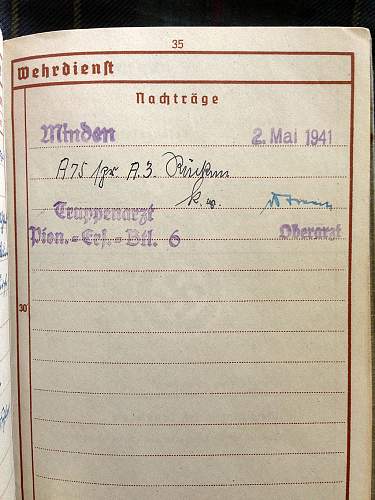 35
Wehrdienst
Nachträge
Minden 2. Mai 1941
A 75 A.3.
k. v.
Truppenarzt
Pion.-Ers.-Btl. 6 Oberarzt
30